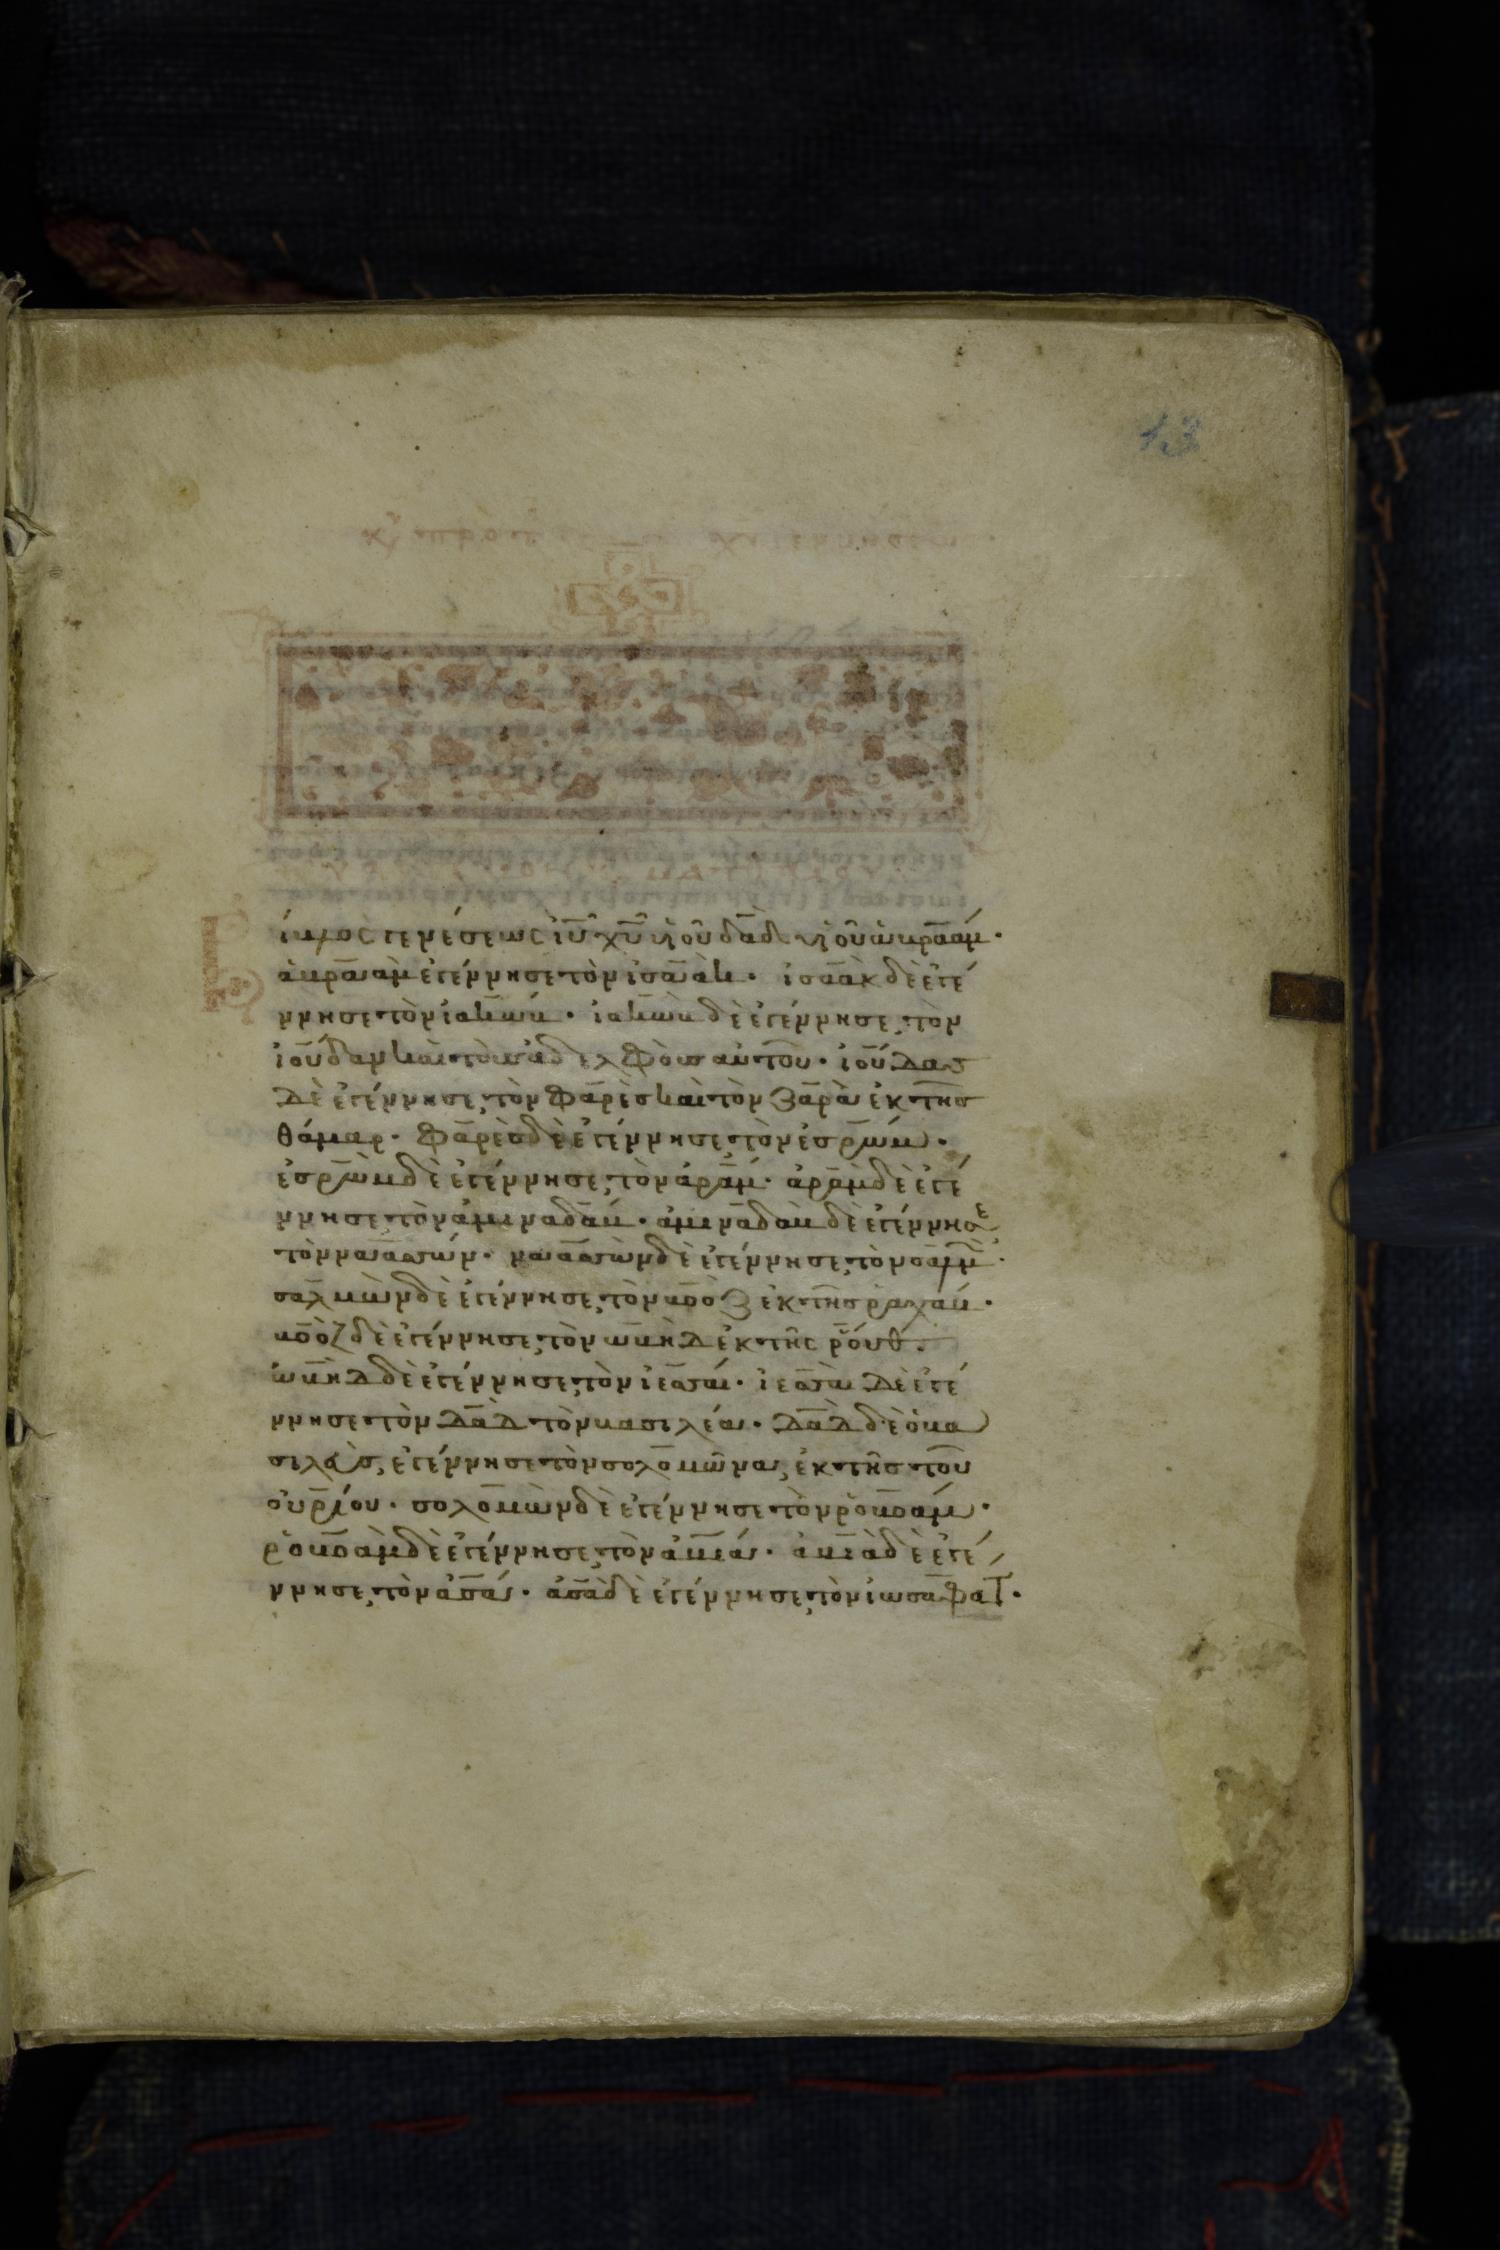 13
ίβλος γενέσεως ἰῡ χῡ υἱοῦ δᾱδ υἱοῦ ἀβραάμ·
ἀβραὰμ ἐγέννησε τὸν ἰσαὰκ· ἰσαὰκ δὲ ἐγέ
ννησε τὸν ἰακώβ· ἰακὼβ δὲ ἐγέννησε τὸν
ἰούδαν καὶ τοὺς ἀδελφοὺς αὐτοῦ· ἰούδας
δὲ ἐγέννησε τὸν φαρὲς καὶ τὸν ζαρὰ ἐκ τῆς
θάμαρ· φαρὲς δὲ ἐγέννησε τὸν ἐσρώμ·
ἐσρὼμ δὲ ἐγέννησε τὸν ἀράμ· ἀρὰμ δὲ ἐγέ
ννησε τὸν ἀμιναδάβ· ἀμιναδὰβ δὲ ἐγέννησε
τὸν ναασσών· ναασσὼν δὲ ἐγέννησε τὸν σαλμὼ·
σαλμὼν δὲ ἐγέννησε τὸν βοὸζ ἐκ τῆς ῥαχάβ·
βοὸζ δὲ ἐγέννησε τὸν ὠβὴδ ἐκ τῆς ῥούθ·
ὠβὴδ δὲ ἐγέννησε τὸν ἰεσσαί· ἰεσσαὶ δὲ ἐγέ
ννησε τὸν δᾱδ τὸν βασιλέα· δᾱδ δὲ ὁ βα
σιλεὺς ἐγέννησε τὸν σολομῶνα ἐκ τῆς τοῦ
οὐρίου· σολομὼν δὲ ἐγέννησε τὸν ῥοβοάμ·
ῥοβοὰμ δὲ ἐγέννησε τὸν ἀβιά· ἀβιὰ δὲ ἐγέ
ννησε τὸν ἀσά· ἀσὰ δὲ ἐγέννησε τὸν ἰωσαφατ·